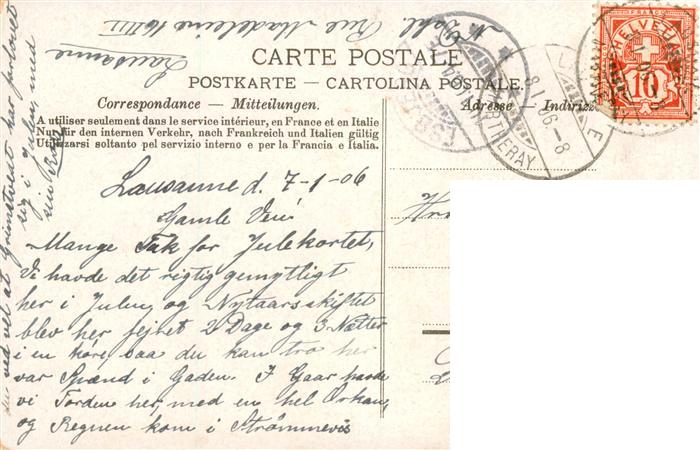 N. Dahl. Rue Madeleine 16 III
Lausanne
CARTE POSTALE
POSTKARTE — CARTOLINA POSTALE.
Correspondance — Mitteilungen.
Adresse — Indirizz
A utiliser seulement dans le service intérieur, en France et en Italie
Nur für den internen Verkehr, nach Frankreich und Italien gültig
Utilizzarsi soltanto pel servizio interno e per la Francia e Italia.
HELVETIA
FRANCO
10
8.I.06-8
Lausanne d. 7-1-06
Gamle Ven!
Mange Tak for Julekortet,
Vi havde det rigtig gemytligt
her i Julen, og Nytaarsskiftet
blev her fejret 2 Dage og 3 Nætter
i en køre, saa du kan tro her
var Spænd i Gaden. I Gaar havde
vi Torden her, med en hel Orkan,
og Regnen kom i Strømmevis
ved vel at Grimstvedt har forlovet
sig i Julen, med
sin